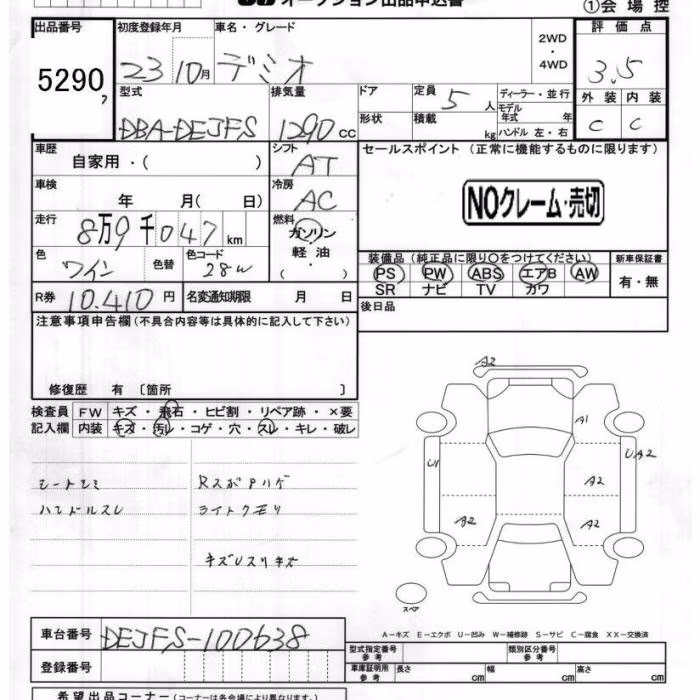 オークション出品申込書
①会場控
出品番号 初度登録年月 車名・グレード 2WD・4WD 評価点
5290 23 10月 デミオ 3.5
型式 排気量 ドア 定員 5人 ディーラー・並行 外装 内装
DBA-DEJFS 1290cc 形状 積載 kg モデル年式 年 ハンドル 左・右 C C
車歴 自家用・( ) シフト AT セールスポイント(正常に機能するものに限ります)
車検 年 月( 日) 冷房 AC NOクレーム・売切
走行 8万9千047km 燃料 ガソリン 軽油・( )
装備品(純正品に限り○をつけてください) 新車保証書
色 ワイン 色替 色コード 28W PS PW ABS エアB AW 有・無
SR ナビ TV カワ
R券 10.410円 名変通知期限 月 日 後日品
注意事項申告欄(不具合内容等は具体的に記入して下さい)
修復歴 有 〔箇所 〕
検査員記入欄 FW キズ・飛石・ヒビ割・リペア跡・×要
内装 キズ・汚レ・コゲ・穴・スレ・キレ・破レ
シートシミ
ハンドルスレ
ライトクモリ
A2
A1
U1
UA2
A2
A2
A2
スペア
A－キズ E－エクボ U－凹み W－補修跡 S－サビ C－腐食 XX－交換済
車台番号 DEJFS-100638
登録番号
型式指定番号 参考 類別区分番号 参考
車庫証明用 参考 長さ cm 幅 cm 高さ cm
希望出品コーナー(コーナーは各会場により異なります。)